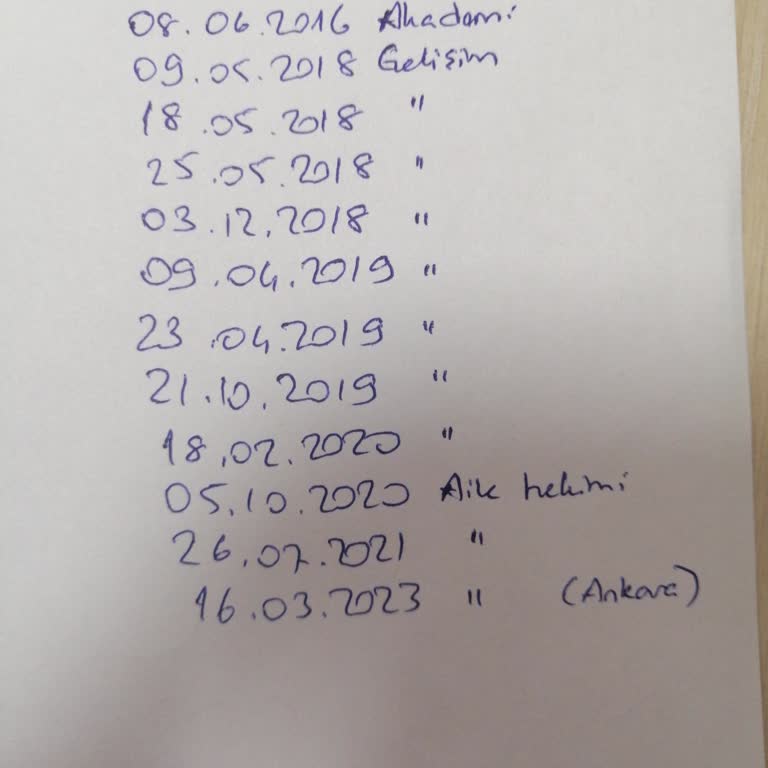 08.06.2016 Akademi
09.05.2018 Gelişim
18.05.2018 "
25.05.2018 "
03.12.2018 "
09.04.2019 "
23.04.2019 "
21.10.2019 "
18.02.2020 "
05.10.2020 Aile hekimi
26.07.2021 "
16.03.2023 " (Ankara)